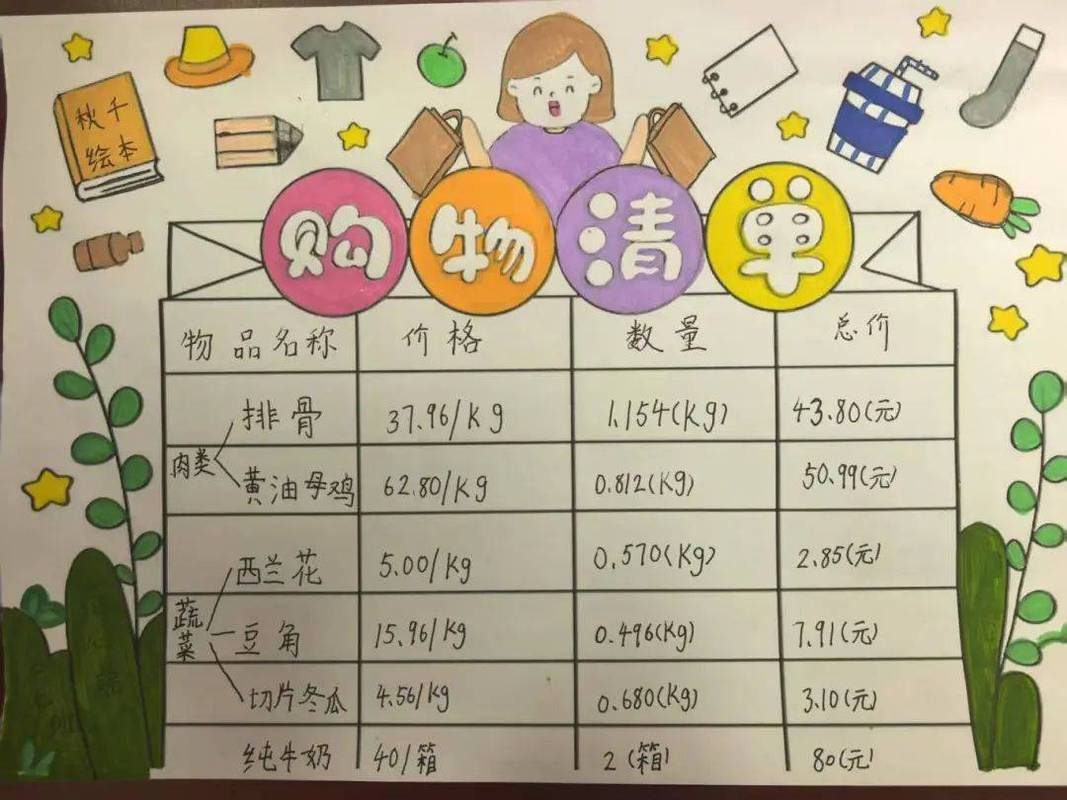 秋千
绘本
购物清单
物品名称 价格 数量 总价
肉类
排骨 37.96/kg 1.154(kg) 43.80(元)
黄油母鸡 62.80/kg 0.812(kg) 50.99(元)
蔬菜
西兰花 5.00/kg 0.570(kg) 2.85(元)
豆角 15.96/kg 0.496(kg) 7.91(元)
切片冬瓜 4.56/kg 0.680(kg) 3.10(元)
纯牛奶 40/箱 2(箱) 80(元)